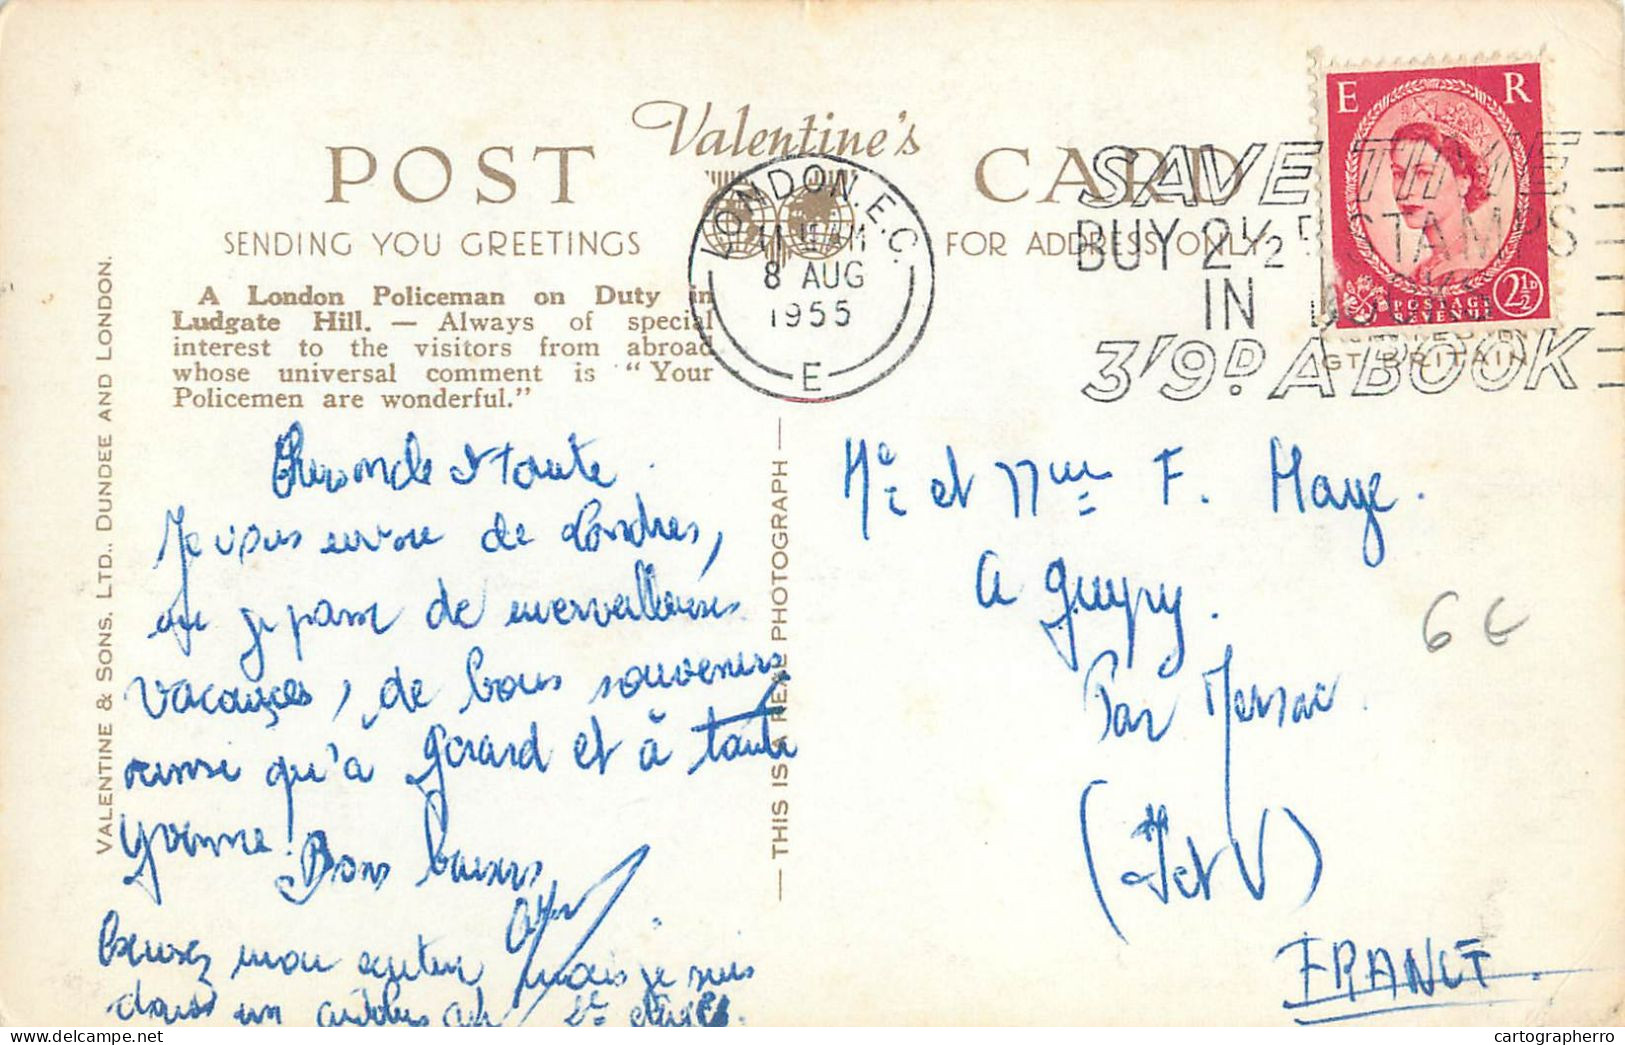 POST Valentine's CARD
SENDING YOU GREETINGS
FOR ADDRESS ONLY
A London Policeman on Duty in
Ludgate Hill. — Always of special
interest to the visitors from abroad
whose universal comment is "Your
Policemen are wonderful."
VALENTINE & SONS, LTD., DUNDEE AND LONDON.
— THIS IS A REAL PHOTOGRAPH —
LONDON. E.C.
11 AM
8 AUG
1955
E
SAVE TIME
BUY 2½D STAMPS
IN BOOKS
3'9D A BOOK
E R
POSTAGE
REVENUE
2½D
GT. BRITAIN
oncle et tante.
Je vous de Londres,
où je passe de merveilleuses
vacances, de bons souvenirs
ainsi qu'à Gérard et à tante
Yvonne. Bons baisers
mon mais je suis
dans un
et Mme F. Maye.
A
Par Mersac.
(Let V)
FRANCE
6 €
cartographerro